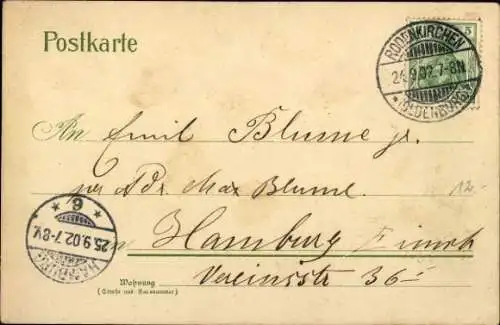 Postkarte
5
RODENKIRCHEN
24.9.02.7-8N
* (OLDENBURG) *
An Emil Blume jr.
per Adr. Max Blume.
12.-
6
25.9.02.7-8V.
Hamburg
in Hamburg
Vereinsstr 36-
Wohnung
(Straße und Hausnummer)